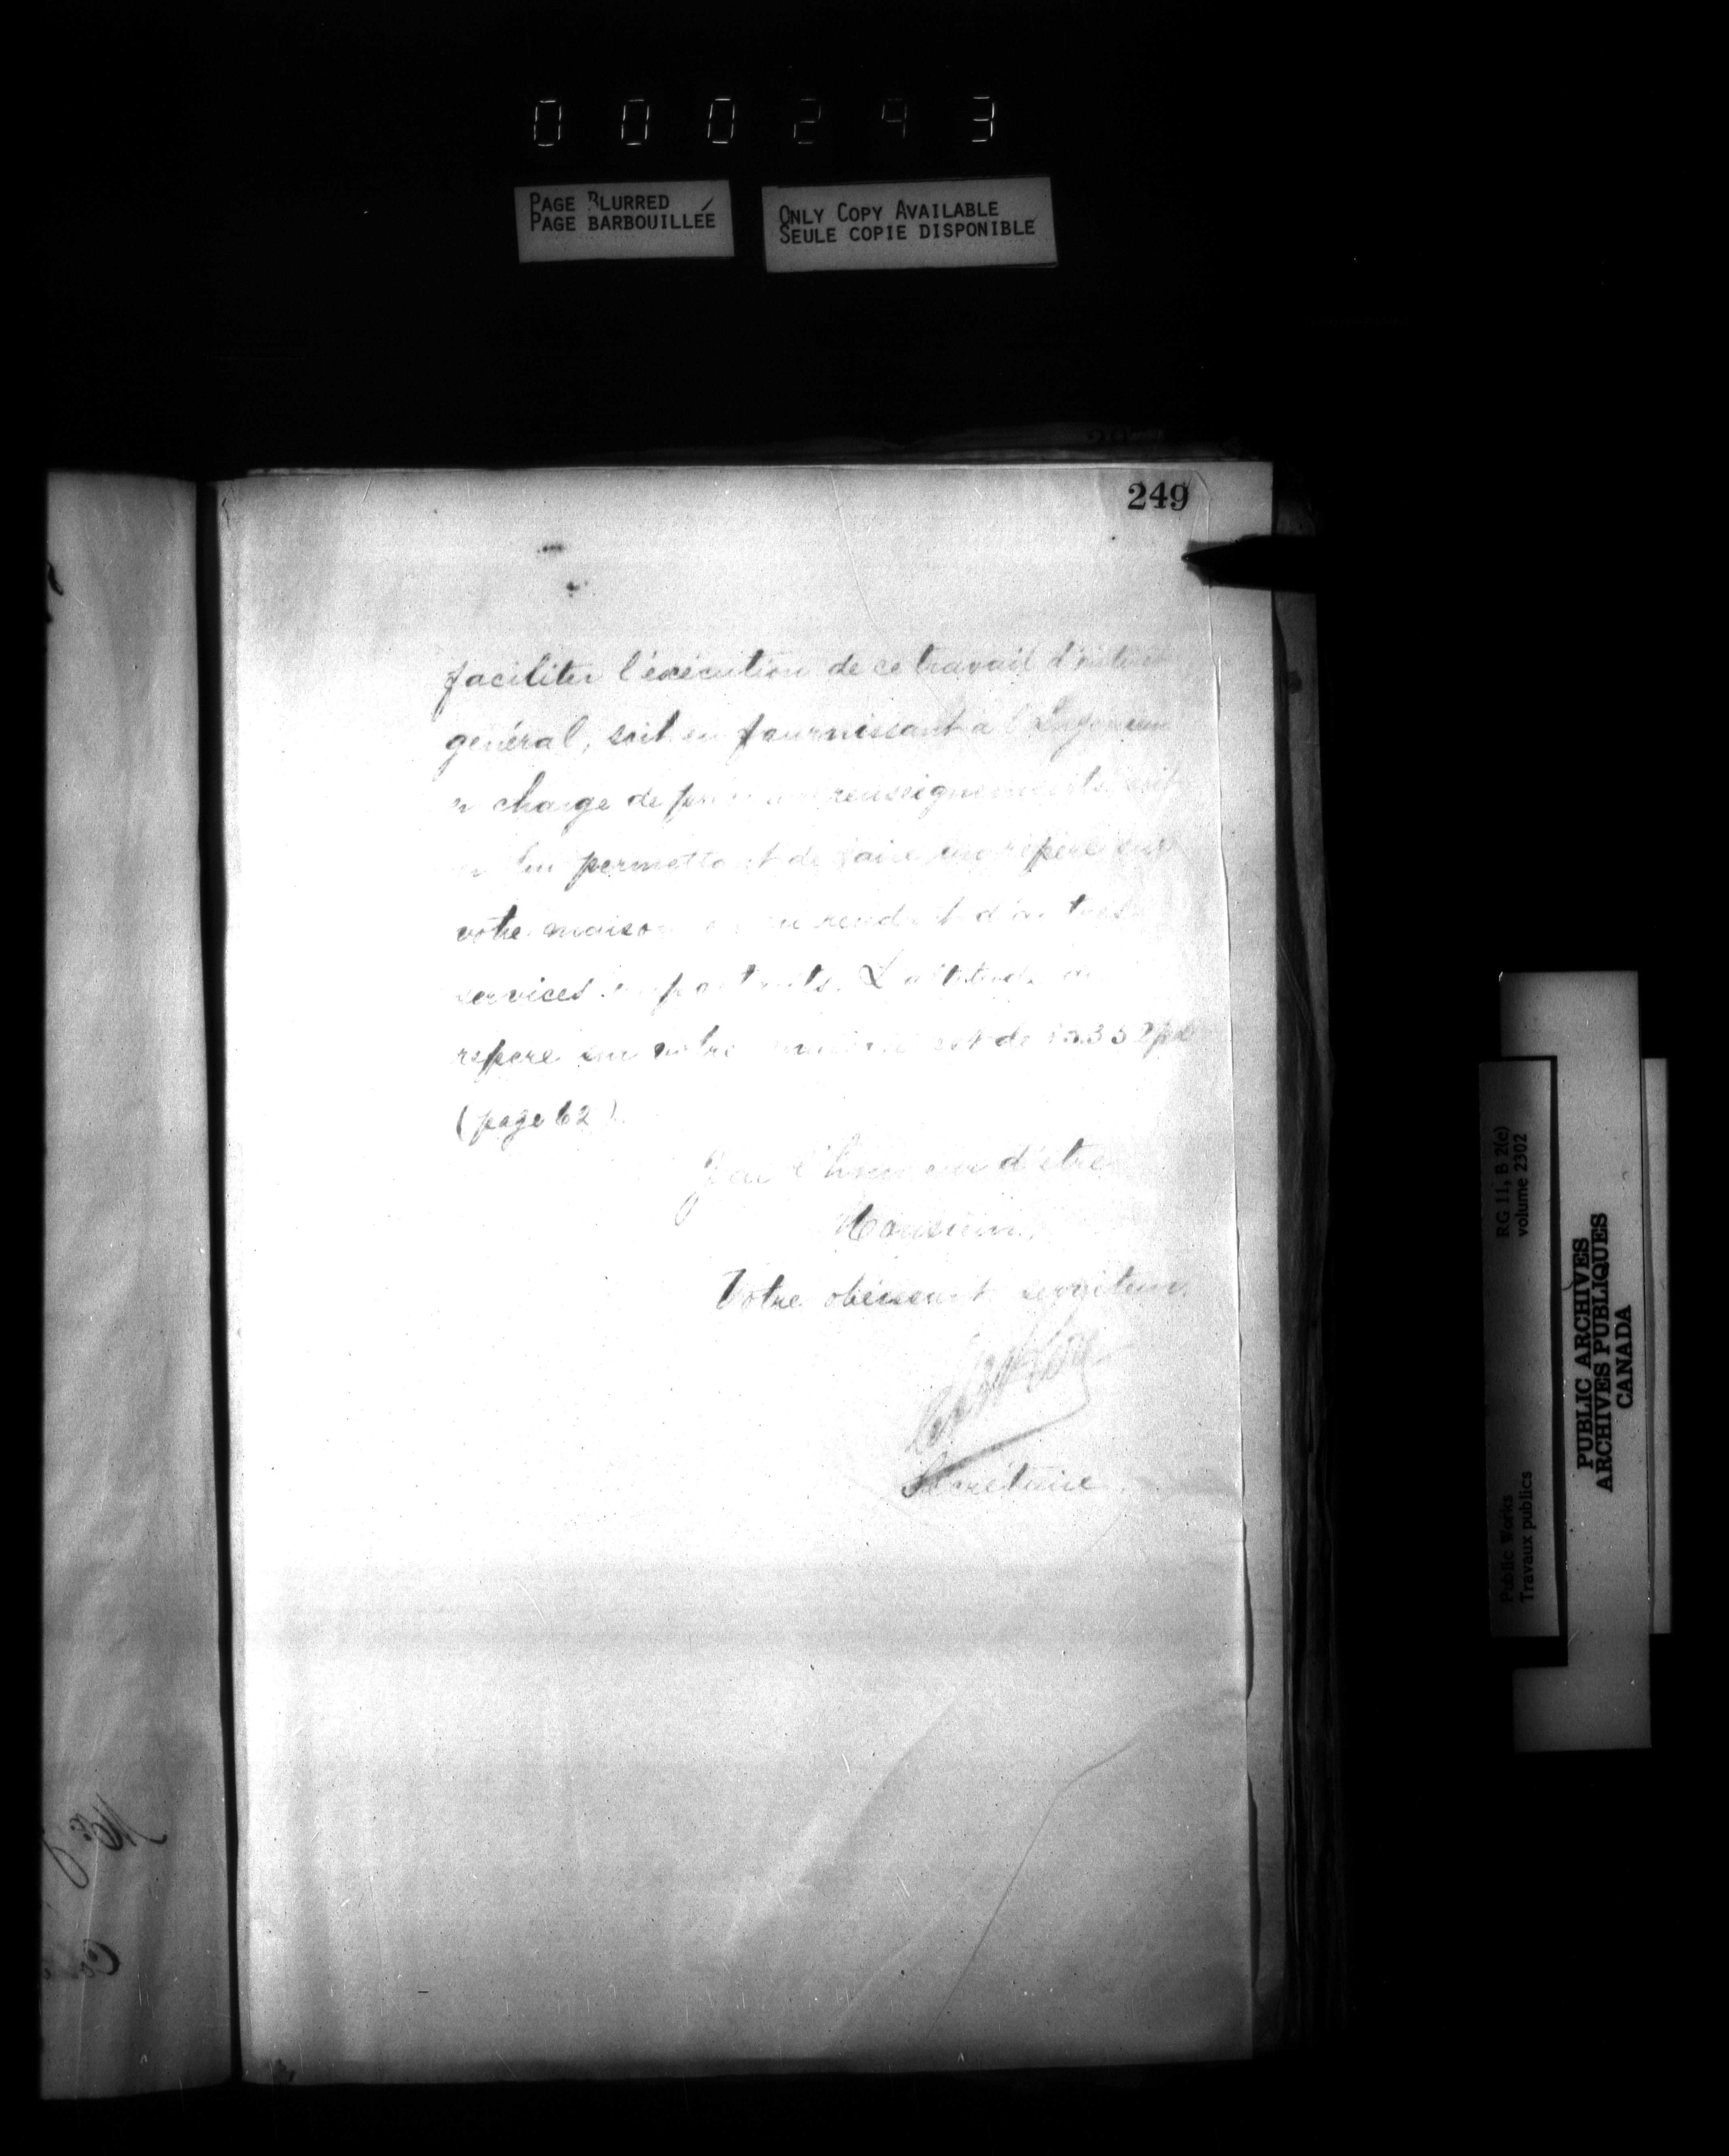 000243
PAGE BLURRED
PAGE BARBOUILLÉE
ONLY COPY AVAILABLE
SEULE COPIE DISPONIBLE
249
faciliter l'exécution de ce travail d'intérêt
général, soit en fournissant à l'Ingénieur
en charge de renseignements, soit
en lui permettant de faire un repère sur
votre maison rendant d'autres
services importants. L'altitude du
repère sur votre maison est de
(page 62).
J'ai l'honneur d'être
Monsieur,
Votre obéissant serviteur,
Secrétaire.
RG 11, B 2(c)
volume 2302
Public Works
Travaux publics
PUBLIC ARCHIVES
ARCHIVES PUBLIQUES
CANADA